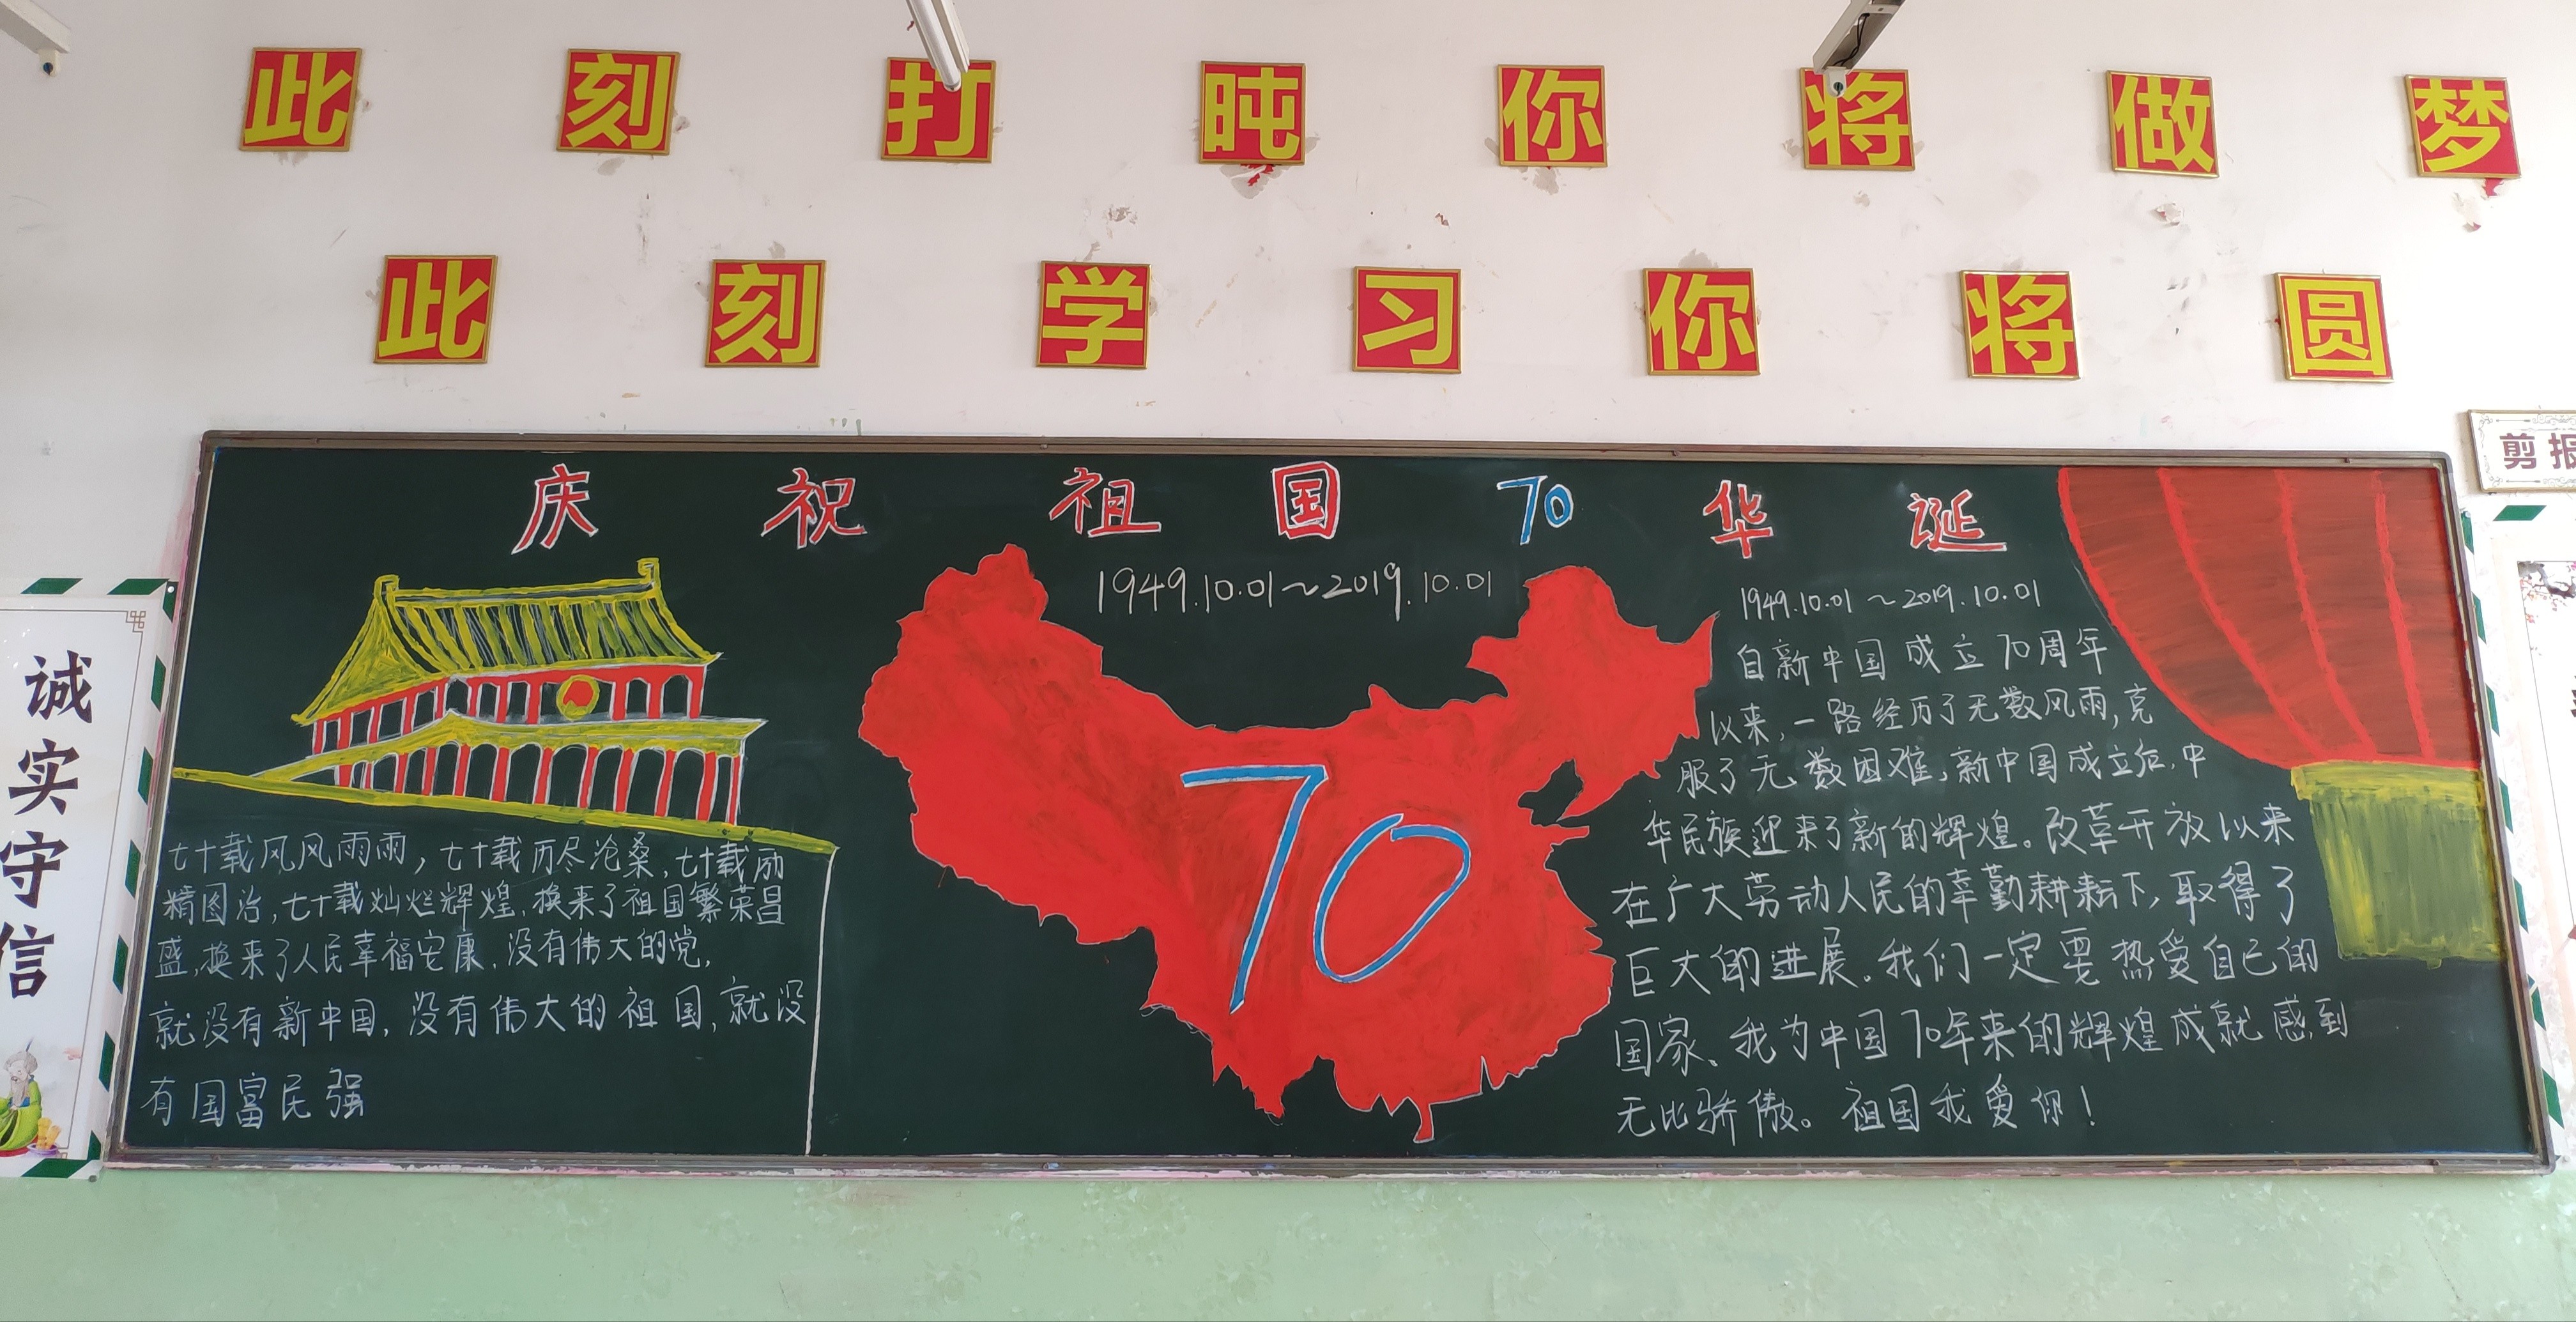 此刻打盹你将做梦
此刻学习你将圆
庆祝祖国70华诞
1949.10.01~2019.10.01
七十载风风雨雨，七十载历尽沧桑，七十载励
精图治，七十载灿烂辉煌，换来了祖国繁荣昌
盛，换来了人民幸福安康，没有伟大的党，
就没有新中国，没有伟大的祖国，就没
有国富民强
70
1949.10.01~2019.10.01
自新中国成立70周年
以来，一路经历了无数风雨，克
服了无数困难，新中国成立后，中
华民族迎来了新的辉煌。改革开放以来
在广大劳动人民的辛勤耕耘下，取得了
巨大的进展。我们一定要热爱自己的
国家、我为中国70年来的辉煌成就感到
无比骄傲。祖国我爱你！
诚实守信
剪报